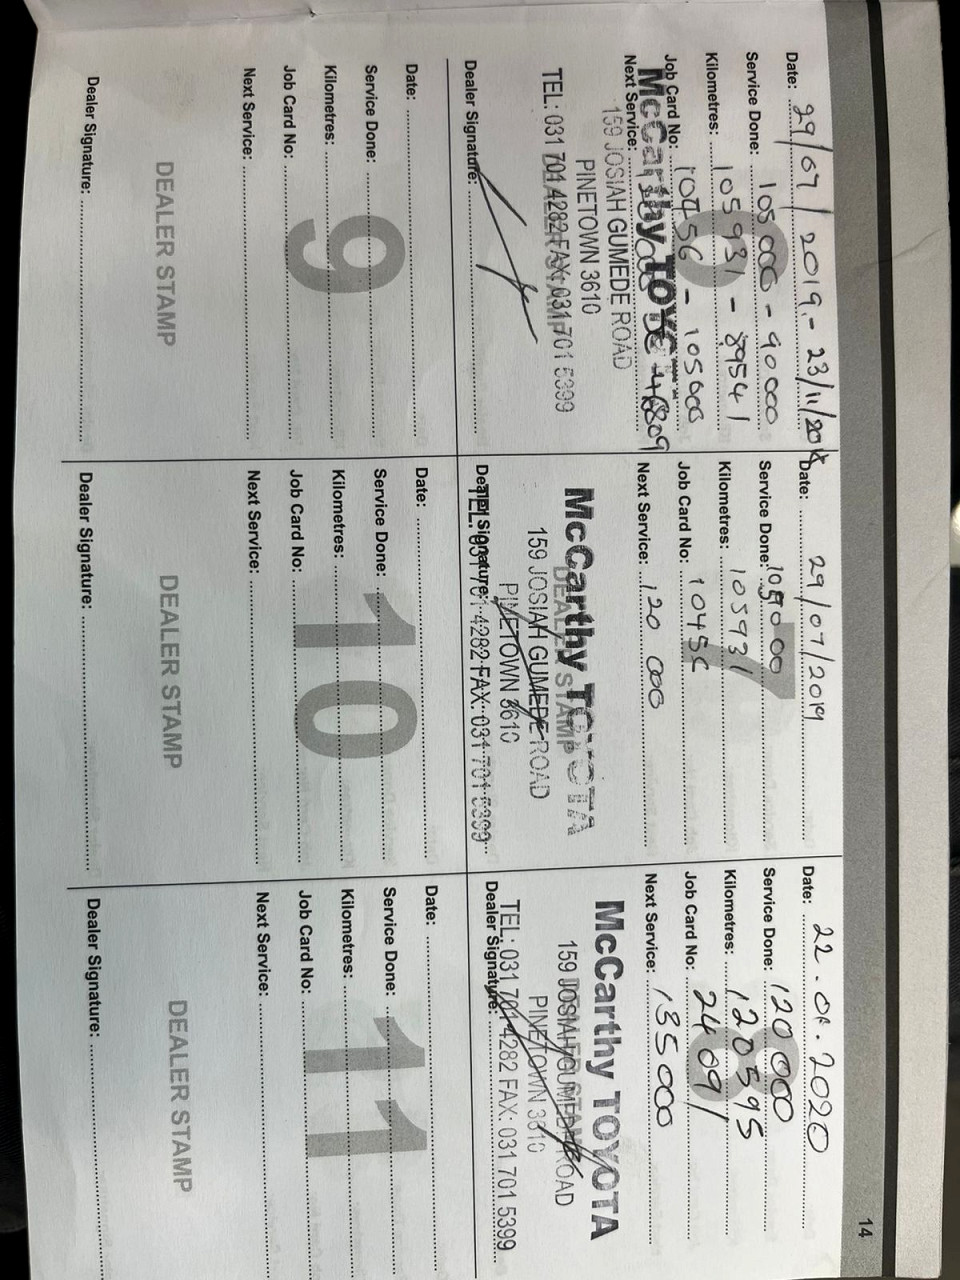 14
Date: 29/07/2019 - 23/11/2018
Service Done: 105 000 - 90 000
Kilometres: 105931 - 89541
Job Card No: 10456 - 105000
Next Service: 46809
6
McCarthy TOYOTA
159 JOSIAH GUMEDE ROAD
PINETOWN 3610
TEL: 031 701 4282 FAX: 031 701 5399
Dealer Signature:
Date: 29/07/2019
Service Done: 105000
Kilometres: 105931
Job Card No: 10456
Next Service: 120 000
7
McCarthy TOYOTA
DEALER STAMP
159 JOSIAH GUMEDE ROAD
PINETOWN 3610
Dealer Signature:
TEL: 031 701 4282 FAX: 031 701 5399
Date: 22.01.2020
Service Done: 120 000
Kilometres: 120595
Job Card No: 24091
Next Service: 135000
8
McCarthy TOYOTA
159 JOSIAH GUMEDE ROAD
PINETOWN 3610
TEL: 031 701 4282 FAX: 031 701 5399
Dealer Signature:
Date:
Service Done:
Kilometres:
Job Card No:
Next Service:
9
DEALER STAMP
Dealer Signature:
Date:
Service Done:
Kilometres:
Job Card No:
Next Service:
10
DEALER STAMP
Dealer Signature:
Date:
Service Done:
Kilometres:
Job Card No:
Next Service:
11
DEALER STAMP
Dealer Signature: